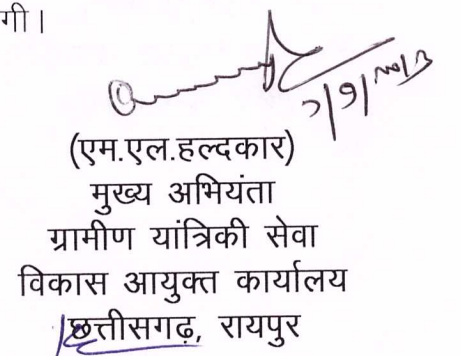 गी।
(एम.एल.हल्दकार)
मुख्य अभियंता
ग्रामीण यांत्रिकी सेवा
विकास आयुक्त कार्यालय
छत्तीसगढ़, रायपुर